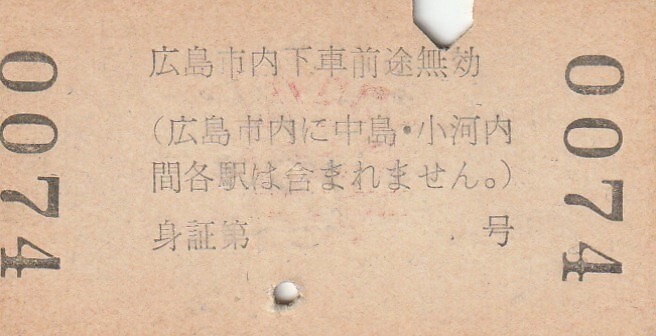 広島市内下車前途無効
(広島市内に中島・小河内
間各駅は含まれません。)
身証第 号
0074
0074